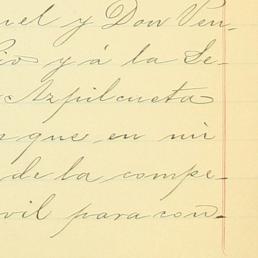 uel y Don Ven-
cio y á la Se-
Azpilcueta
s que en mi
de la compe-
vil para con-